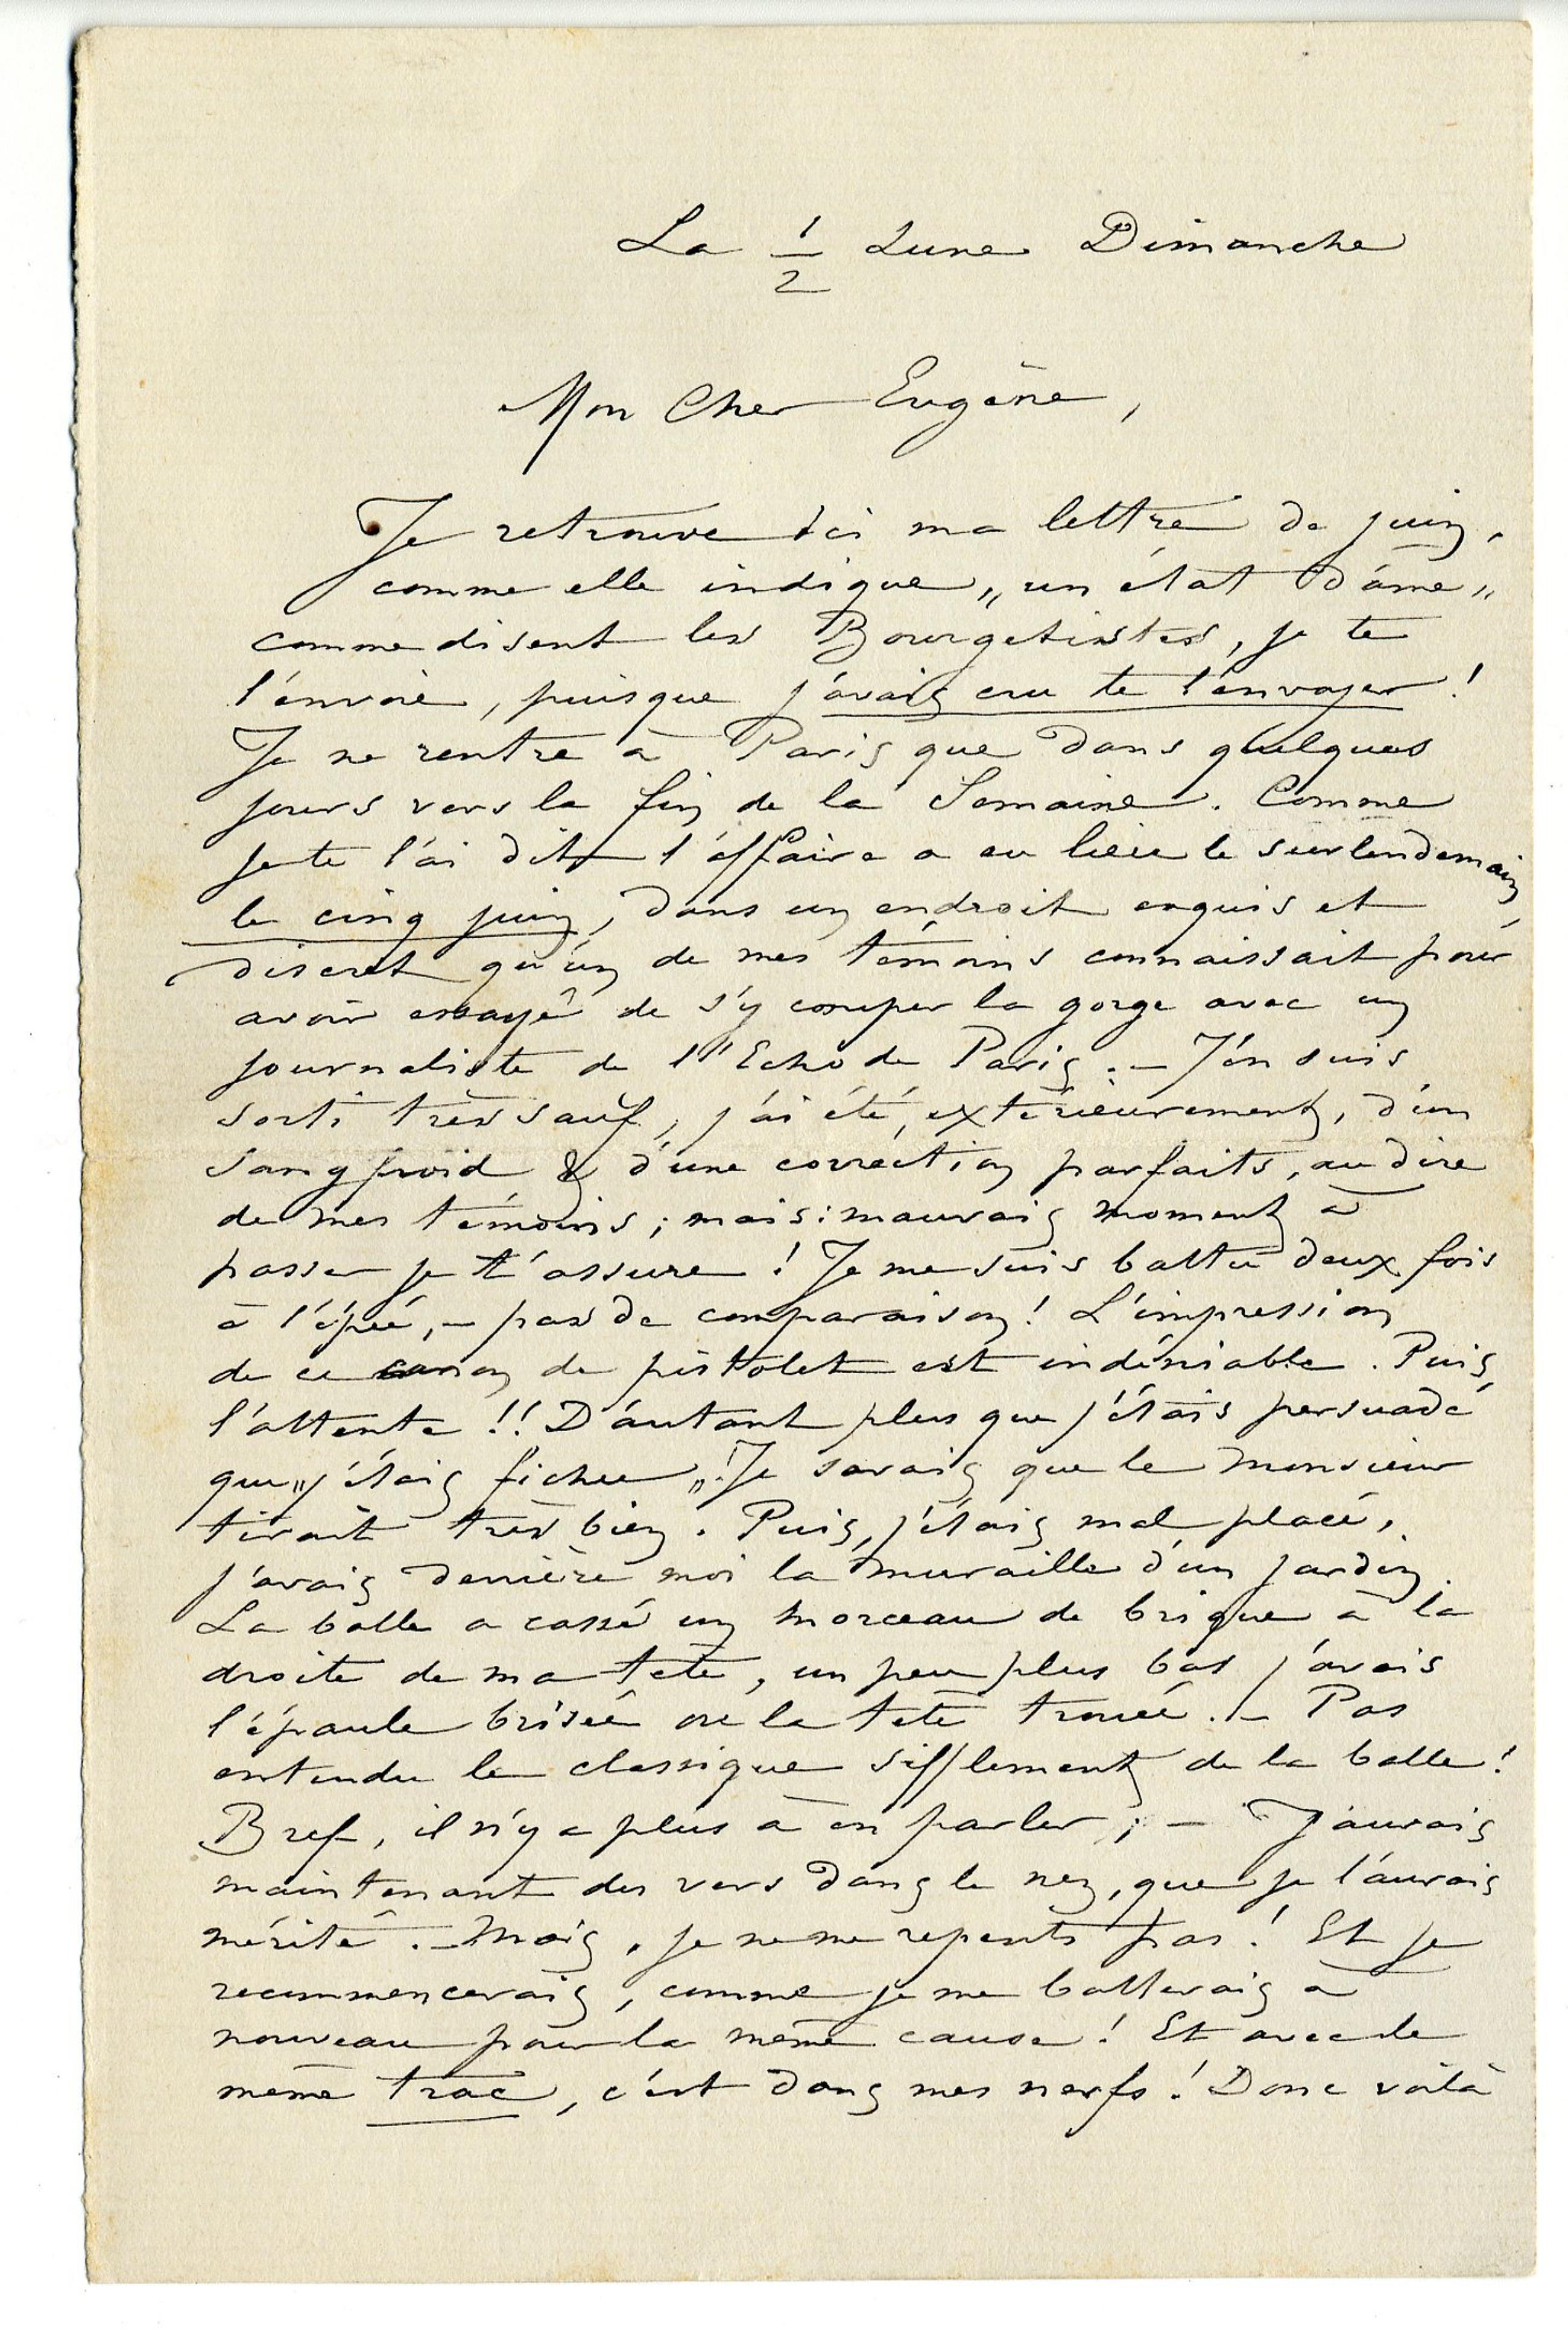 La 1/2 Lune Dimanche
Mon Cher Eugène,
Je retrouve ici ma lettre de juin,
comme elle indique „un état d'âme„
comme disent les Bourgetistes, je te
l'envoie, puisque j'avais cru te l'envoyer !
Je ne rentre à Paris que dans quelques
jours vers la fin de la Semaine. Comme
je te l'ai dit l'affaire a eu lieu le surlendemain,
le cinq juin, dans un endroit exquis et
discret qu'un de mes témoins connaissait pour
avoir essayé de s'y couper la gorge avec un
journaliste de l'Echo de Paris. – J'en suis
sorti très sauf, j'ai été, extérieurement, d'un
sang froid & d'une correction parfaits, au dire
de mes témoins ; mais : mauvais moment à
passer je t'assure ! Je me suis battu deux fois
à l'épée, – pas de comparaison ! L'impression
de ce canon de pistolet est indéniable. Puis,
l'attente !! D'autant plus que j'étais persuadé
que „j'étais fichu„ ! Je savais que le Monsieur
tirait très bien. Puis, j'étais mal placé,
j'avais derrière moi la muraille d'un jardin.
La balle a cassé un morceau de brique à la
droite de ma tête, un peu plus bas j'avais
l'épaule brisée ou la tête trouée. – Pas
entendu le classique sifflement de la balle !
Bref, il n'y a plus à en parler ; – J'aurais
maintenant des vers dans le nez, que je l'aurais
mérité. – Mais, je ne me repents pas ! Et je
recommencerais, comme je me batterais à
nouveau pour la même cause ! Et avec le
même trac, c'est dans mes nerfs ! Donc voilà